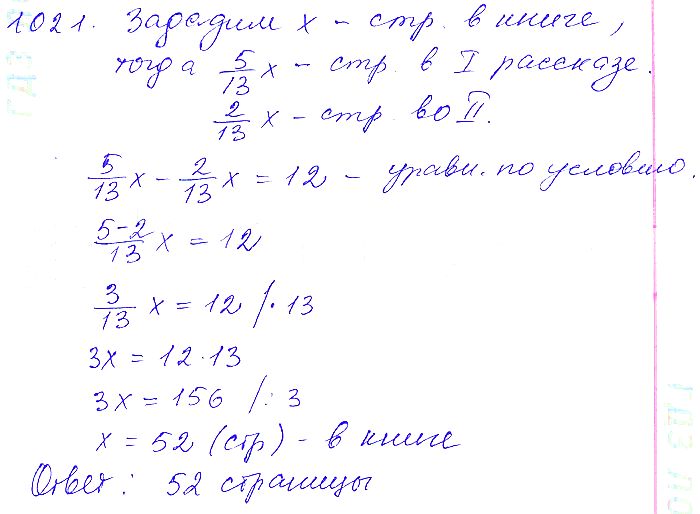 1021. Зададим x - стр. в книге,
тогда 5/13 x - стр. в I рассказе.
2/13 x - стр. во II.
5/13 x - 2/13 x = 12 - уравн. по условию.
5-2/13 x = 12
3/13 x = 12 /· 13
3x = 12·13
3x = 156 /: 3
x = 52 (стр) - в книге
Ответ: 52 страницы